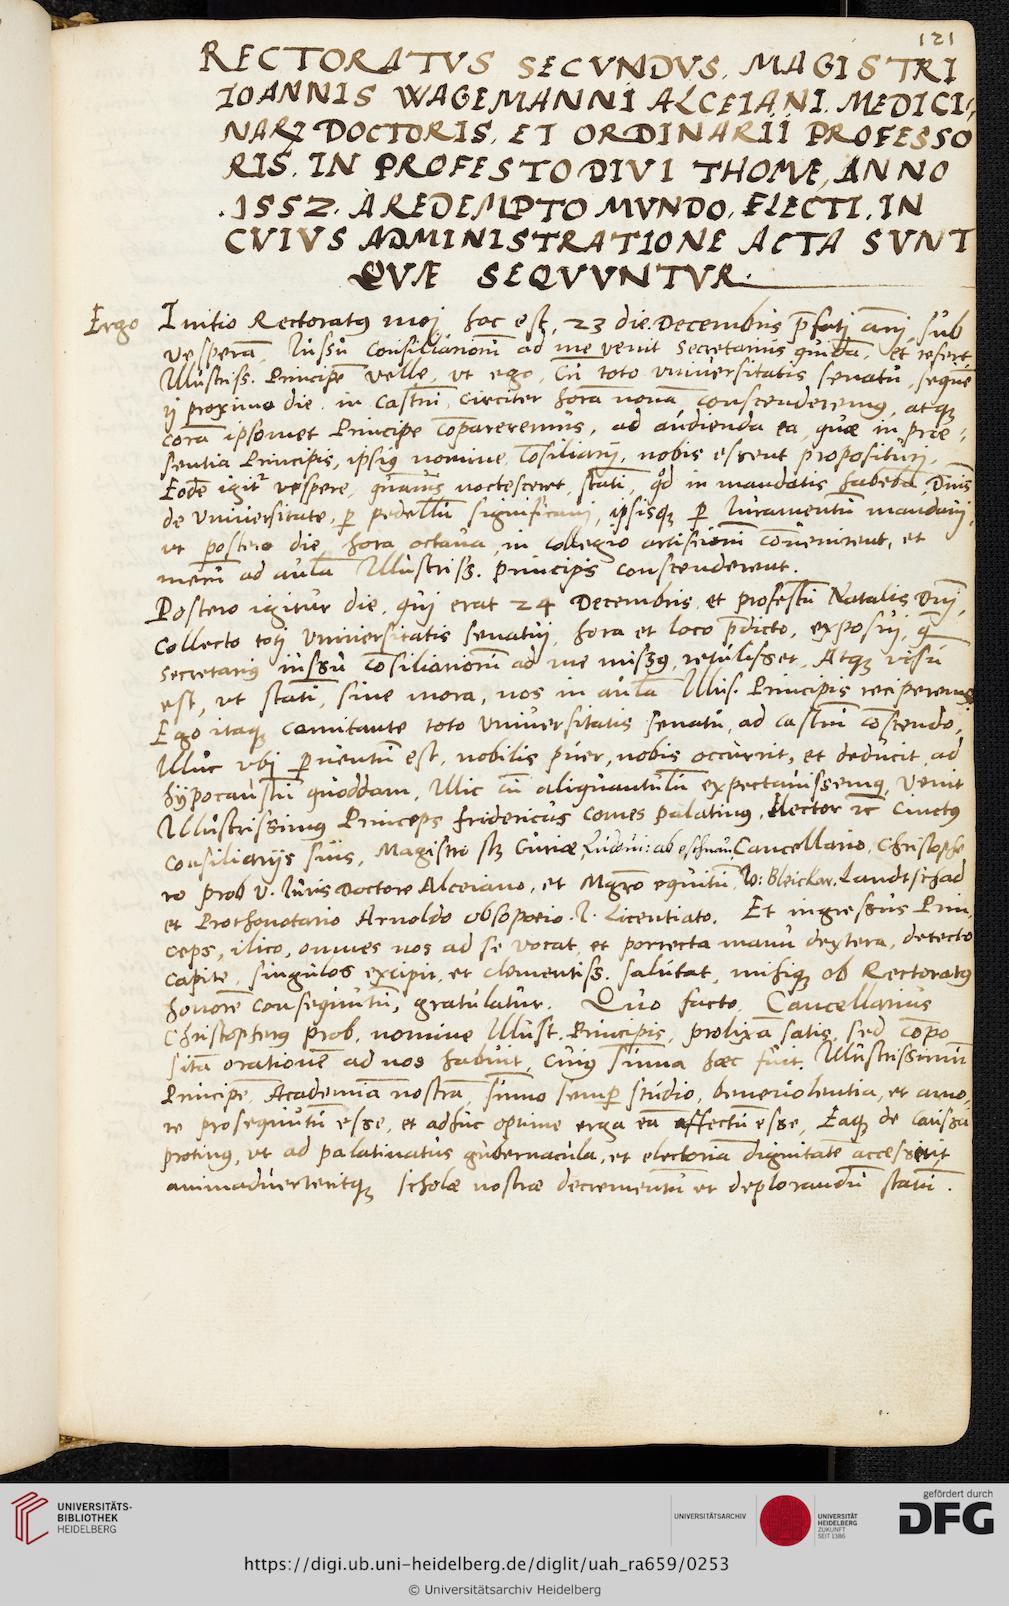 121
RECTORATVS SECVNDVS. MAGISTRI
IOANNIS WAGEMANNI ALCEIANI. MEDICI-
NARŻ DOCTORIS, ET ORDINARII PROFESSO
RIS. IN PROFESTO DIVI THOMÆ, ANNO
.1552. A REDEMPTO MVNDO, ELECTI, IN
CVIVS ADMINISTRATIONE ACTA SVNT
QVÆ SEQVVNTVR.
Ergo Initio Rectoratus mej, hoc est, 23 die Decembris p̄fatj anj, sub
vesperā, Iussu Consiliarioru̅ ad me venit Secretarius quidā, et refert
Illustriss. Principē velle, vt ego, cū toto vniuersitatis senatu, seque̅
ti proximo die, in castru̅, circiter horā nonā, conscenderemus, atq̨
corā ipsomet Principe co̅pareremus, ad audienda ea, quæ in præ-
sentia Principis, ipsius nomine, co̅siliarij, nobis essent proposituri,
Eode̅ igitr vespere, quāuis noctesceret, statī, qd in mandatis habebā, Dn̅is
de Vniuersitate, p̱ pedellu̅ significaui, ipsisq̨ p̱ Iuramentu̅ mandaui,
vt postero die, hora octaua, in collegio artistaru̅ co̅uenirent, et
mecu̅ ad aulā Illustriss. principis conscenderent.
Postero igitur die, qui erat 24 Decembris, et profestu̅ Natalis Dn̅j,
Collecto toti Vniuersitatis senatui, hora et loco p̄dicto, exposui, q̅
Secretarius iussu Co̅siliarioru̅ ad me missus, retulisset, Atq̨ visu̅
est, vt statī, sine mora, nos in aulā Illus. Principis reciperemus,
Ego itaq̨ comitante toto Vniuersitatis senatu, ad castru̅ co̅scendo,
Illuc vbj p̱uentu̅ est, nobilis puer, nobis occurrit, et deducit, ad
hypocaustu̅ quoddam, Illic cu̅ aliquantulu̅ expectauissemus, Venit
Illustrissimus Princeps fridericus Comes palatinus, Elector rc cinctus
Consiliarijs suis, Magistro sz Curiæ, Ludoui: ab eschnau, Cancellario, Christophe
ro prob V. Iuris Doctore Alceiano, et Mgr̅o equitu̅, Io: Bleickar. Landtschad
et Prothonotario Arnoldo obsopoeio. I. Licentiato. Et ingressus Prin,
ceps, ilico, omnes nos ad se vocat, et porrecta manu dextera, detecto
capite, singulos excipit, et clementiss. salutat, mihiq̨ ob Rectoratus
honore̅ consequutu̅, gratulatur. Quo facto, Cancellarius
Christopherus Prob. nomine Illust. Principis, prolixā satis, sed co̅po
sitā oratione̅ ad nos habuit, cuius su̅ma hæc fuit. Illustrissimu̅
Principe̅, Academiā nostrā, su̅mo semp̱ studio, beneuolentia, et amo,
re prosequutu̅ esse, et adhuc optime erga eā affectu̅ esse, Eaq̨ de Caussa
protinus, vt ad palatinatus gubernacula, et electoriā dignitate̅ accesserit
animaduerteritq̨ scholæ nostræ decrementu̅ et deplorandu̅ statu̅.
UNIVERSITÄTS-
BIBLIOTHEK
HEIDELBERG
UNIVERSITÄTSARCHIV
UNIVERSITÄT
HEIDELBERG
ZUKUNFT
SEIT 1386
gefördert durch
DFG
https://digi.ub.uni-heidelberg.de/diglit/uah_ra659/0253
© Universitätsarchiv Heidelberg